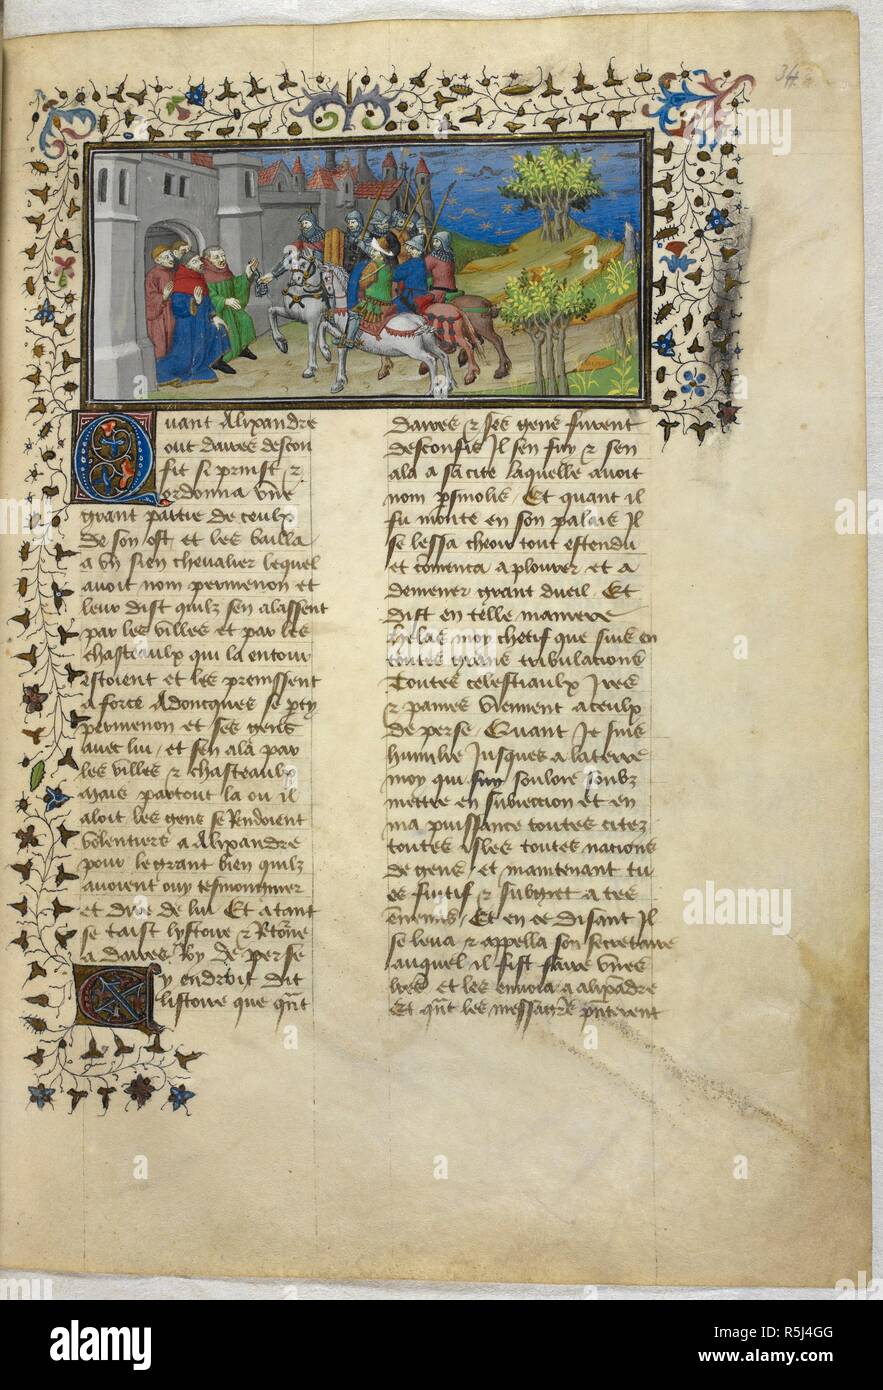 34
Quant Alixandre
out daires descon
fit Il prinst &
ordonna une
grant partie de ceulx
de son ost et les bailla
a un sien chevalier lequel
avoit nom permenon et
leur dist quilz sen alassent
par les villes et par les
chasteaulx qui la entour
estoient et les preissent
a force Adoncques se pty
permenon et ses gens
avec lui et sen ala par
les villes & chasteaulx
Mais partout la ou il
aloit les gens se Rendoient
volentiers a Alixandre
pour le grant bien quilz
avoient ouy tesmongnier
et dire de lui Et atant
se taist lystoire & Rtorne
a daires Roy de perse
Cy endroit dit
listoire que qnt
daires & ses gens furent
desconfis Il sen fuy & sen
ala a sa cite laquelle avoit
nom psmolis Et quant il
fu monte en son palais Il
se lessa cheoir tout estendu
et comenca a plourer et a
demener grant dueil Et
dist en telle maniere
helas moy chetif que suis en
toutes grans tribulacions
Toutes celestiaulx Ires
& paines viennent a ceulx
de perse Quant Je suis
humble Jusques a la terre
moy qui fuy souloie soubz
mettre en subieccion et en
ma puissance toutes citez
toutes isles toutes nacions
de gens et maintenant tu
es fuitif & subget a tes
ennemis Et en ce disant Il
se leva & appella son secretaire
auquel il fist faire unes
lres et les envoia a alixandre
Et qnt les messagiers pnterent
alamy stock photo
R5J4GG
www.alamy.com